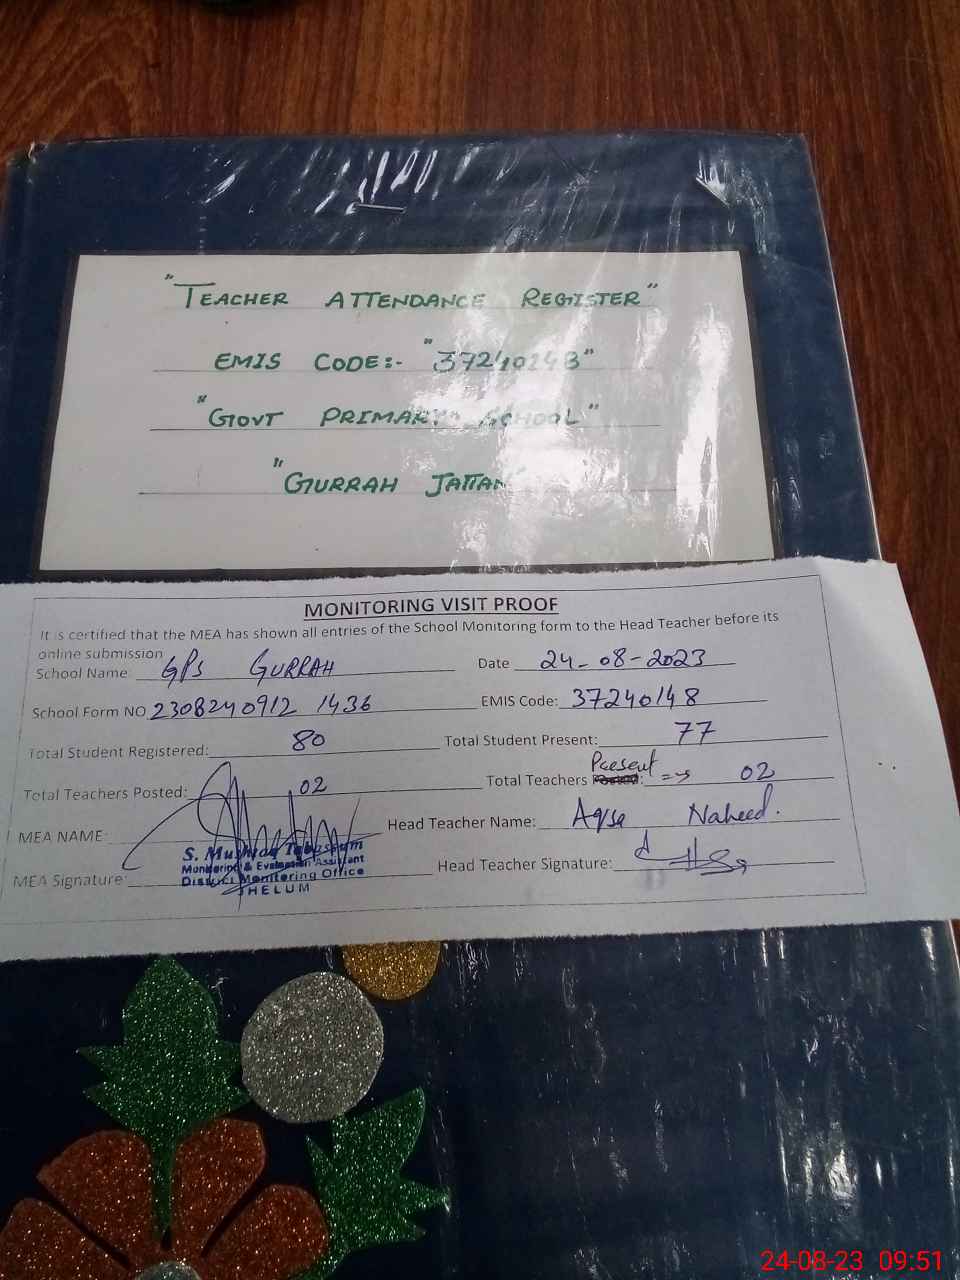 "TEACHER ATTENDANCE REGISTER"
EMIS CODE:- "37240148"
"GOVT PRIMARY SCHOOL"
"GURRAH JATTAN"
MONITORING VISIT PROOF
It is certified that the MEA has shown all entries of the School Monitoring form to the Head Teacher before its
online submission
School Name: GPS GURRAH Date 24-08-2023
School Form NO 2308240912 1436 EMIS Code: 37240148
Total Student Registered: 80 Total Student Present: 77
Total Teachers Posted: 02 Total Teachers Present => 02
MEA NAME: Head Teacher Name: Aqsa Naheed.
S. Mushtaq Tabassum
Monitoring & Evaluation Assistant
District Monitoring Office
JHELUM
MEA Signature: Head Teacher Signature:
24-08-23 09:51